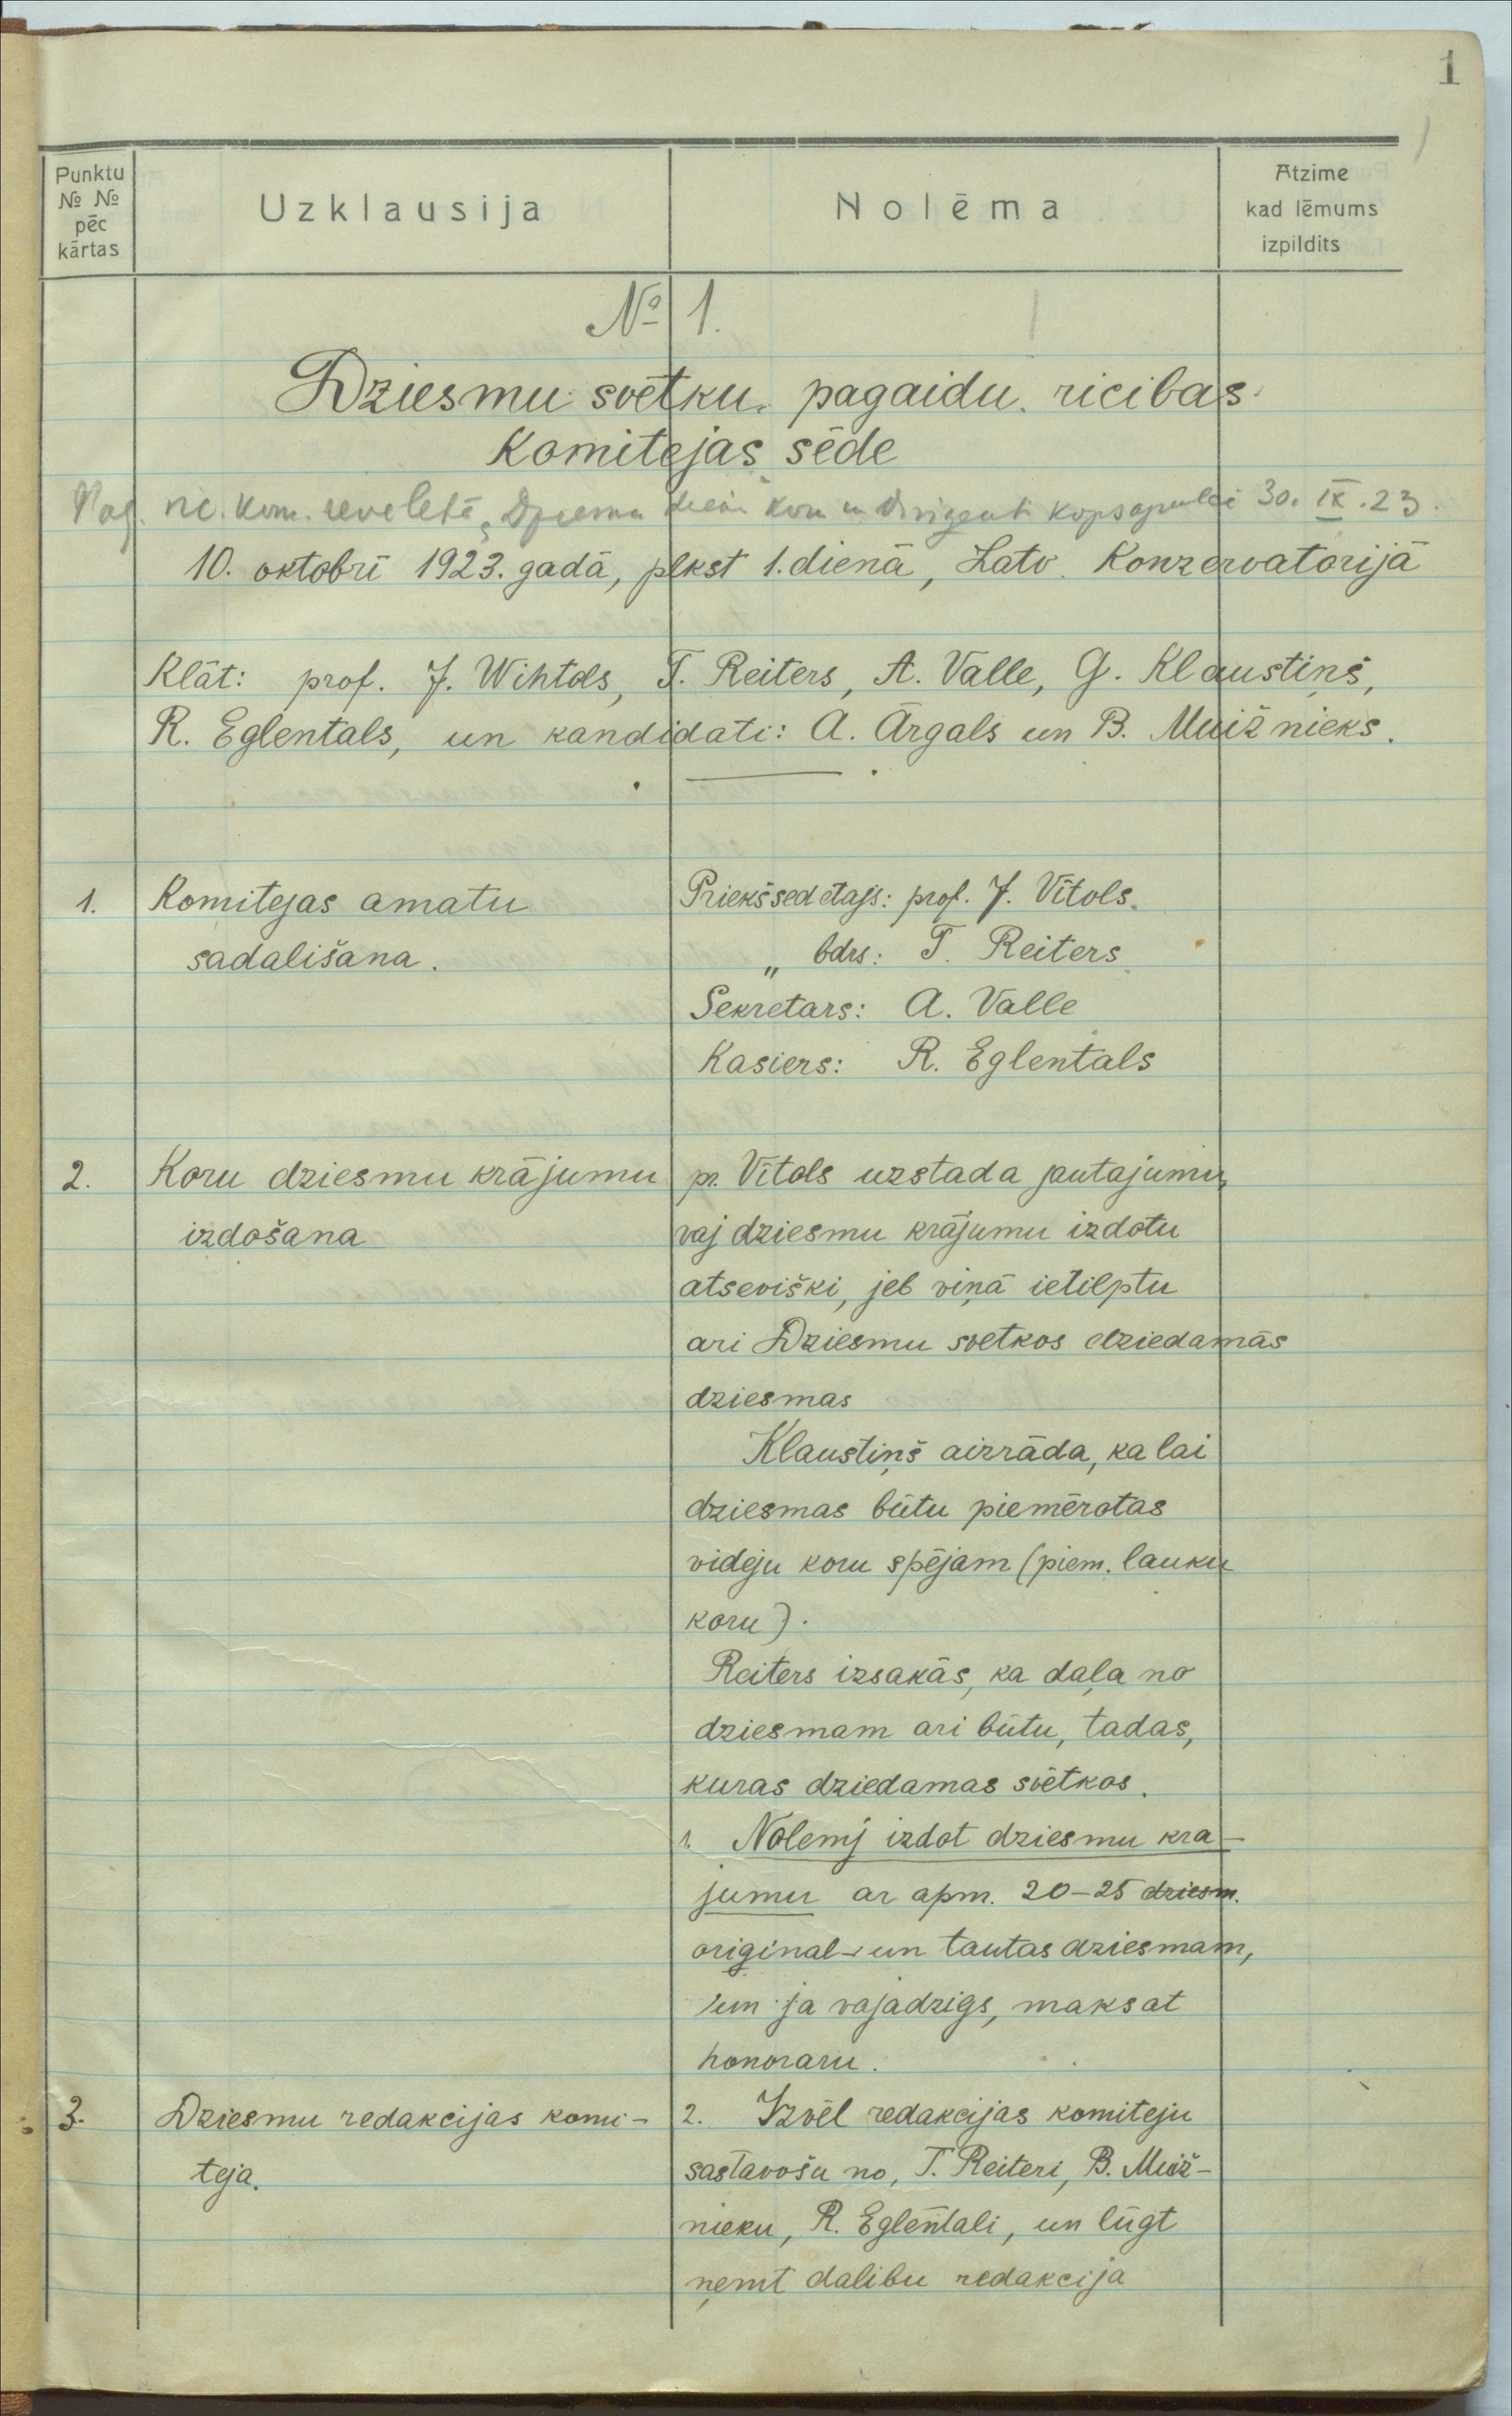 1
Punktu
№ №
pēc
kārtas
Uzklausija
Nolēma
Atzime
kad lēmums
izpildits
№ 1.
Dziesmu svētku pagaidu ricibas
Komitejas sēde
Pag. ric. kom. ievelēta "Dziesmu diena" kom un Dirigentu kopsapulcē 30. IX. 23.
10. oktobrī 1923. gadā, plkst 1. dienā, Latv. Konzervatorijā
Klāt: prof. J. Wihtols, T. Reiters, A. Valle, G. Klaustiņš,
R. Eglentals, un kandidati: A. Ārgals un B. Muižnieks.
1. Komitejas amatu
sadališana.
Priekšsedetajs: prof. J. Vītols.
„ bdrs: T. Reiters
Sekretars: A. Valle
Kasiers: R. Eglentals
2. Koru dziesmu krājumu
izdošana
pr. Vītols uzstada jautajumu,
vaj dziesmu krājumu izdotu
atseviški, jeb viņā ietilptu
ari Dziesmu svetkos dziedamās
dziesmas
Klaustiņš aizrāda, ka lai
dziesmas būtu piemērotas
videju koru spējam (piem. lauku
koru).
Reiters izsakās, ka daļa no
dziesmam ari būtu, tadas,
kuras dziedamas svētkos.
1. Nolemj izdot dziesmu kra-
jumu ar apm. 20-25 dziesm.
original- un tautas dziesmam,
un ja vajadzigs, maksat
honoraru.
3. Dziesmu redakcijas komi-
teja.
2. Izvēl redakcijas komiteju
sastavošu no, T. Reiteri, B. Muiž-
nieku, R. Eglentali, un lūgt
ņemt dalibu redakcija